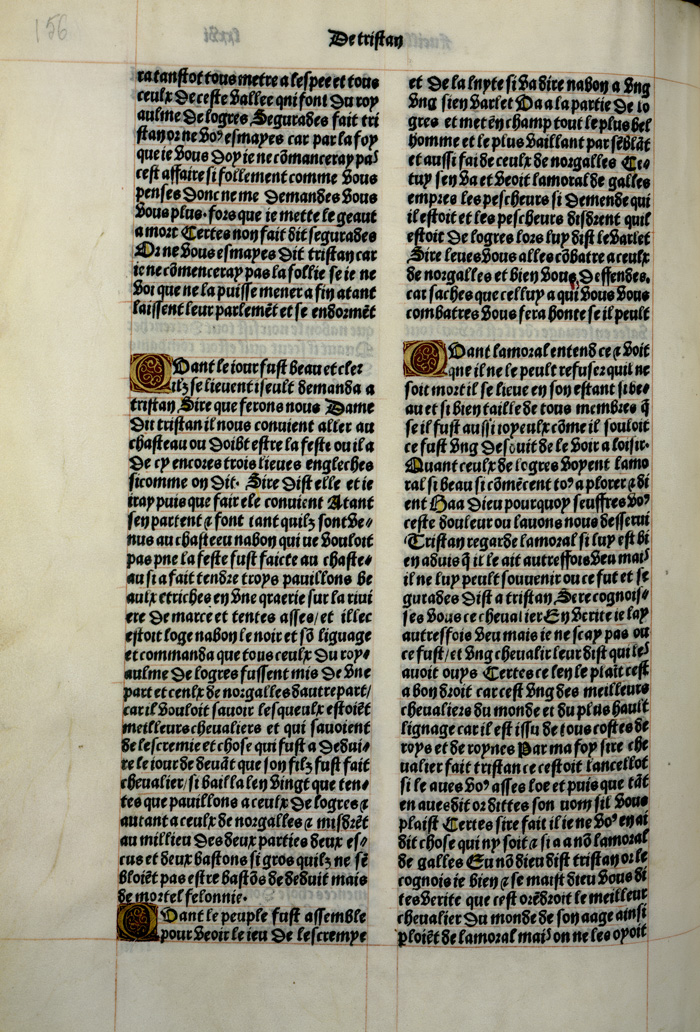 156
De tristan
ra tanstot tous metre a lespee et tous
ceulx de ceste vallee qui font du roy
aulme de logres Segurades fait tri
stan or ne voꝰ esmayes car par la foy
que ie vous doy ie ne cōmanceray pas
cest affaire si follement comme vous
penses Donc ne me demandes vous
vous plus. fors que ie mette le geaut
a mort Certes non fait dit segurades
Or ne vous esmayes dit tristan car
ie ne cōmenceray pas la follie se ie ne
voi que ne la puisse mener a fin atant
laissent leur parlemēt et se endormēt
Quant le iour fust beau et cler
ilz se lieuent iseult demanda a
tristan Sire que ferons nous Dame
dit tristan il nous conuient aller au
chasteau ou doibt estre la feste ou il a
de cy encores trois lieues engleches
si comme on dit. Sire dist elle et ie
iray puis que faire le conuient Atant
sen partent et font tant quilz sont ve
nus au chasteeu nabon qui ne vouloit
pas pne la feste fust faicte au chaste
au si a fait tendre troys pauillons be
aulx et riches en vne praerie sur la riui
ere de marce et tentes asses/ et illec
estoit loge nabon le noir et sō liguage
et commanda que tous ceulx du roy
aulme de logres fussent mis de vne
part et ceulx de norgalles dautre part/
car il vouloit sauoir lesqueulx estoiēt
meilleurs cheualiers et qui sauoient
de lescremie et chose qui fust a dedui
re le iour de deuāt que son filz fust fait
cheualier/ si bailla len vingt que ten
tes que pauillons a ceulx de logres et
autant a ceulx de norgalles et misdrēt
au millieu des deux parties deux es
cus et deux bastons si gros quilz ne sē
bloiēt pas estre bastōs de deduit mais
de mortel felonnie.
Quant le peuple fust assemble
pour veoir le ieu de lescrempe
et de la luyte si va dire nabon a vng
vng sien varlet Va a la partie de lo
gres et met en champ tout le plus bel
homme et le plus vaillant par sēblāt
et aussi fai de ceulx de norgalles Ces
tuy sen va et veoit lamoral de galles
empres les pescheurs si demende qui
il estoit et les pescheurs disdrent quil
estoit de logres lors luy dist le varlet
Sire leues vous alles cōbatre a ceulx
de norgalles et bien vous deffendes.
car saches que celluy a qui vous vous
combatres vous fera honte se il peult
Quant lamoral entend ce et voit
que il ne le peult refuser quil ne
soit mort il se lieue en son estant si be
au et si bien taille de tous membres q̄
se il fust aussi ioyeulx cōme il souloit
ce fust vng desduit de le voir a loisir.
Quant ceulx de logres voyent lamo
ral si beau si cōmēcent toꝰ a plorer et di
ent Haa Dieu pourquoy seuffres voꝰ
ceste douleur ou lauons nous desserui
Tristan regarde lamoral si luy est bi
en aduis q̄ il le ait autreffois veu mais
il ne luy peult souuenir ou ce fut et se
gurades Dist a tristan Sere cognois
ses vous ce cheualier En verite ie lay
autresfois veu mais ie ne scay pas ou
ce fust/ et vng cheualir leur dist qui les
auoit ouys Certes ce len le plait cest
a bon droit car cest vng des meilleurs
cheualiers du monde et du plus hault
lignage car il est issu de tous costes de
roys et de roynes Par ma foy sire che
ualier fait tristan ce cestoit lancellot
si le aues voꝰ asses loe et puis que tāt
en aues dit or dittes son nom sil vous
plaist Certes sire fait il ie ne voꝰ en ai
dit chose qui ny soit et si a a nō lamoral
de galles Eu nō dieu dist tristan or le
cognois ie bien et se maist dieu vous di
tes verite que cest orēdroit le meilleur
cheualier du monde de son aage ainsi
ploiēt de lamoral mais on ne les oyoit